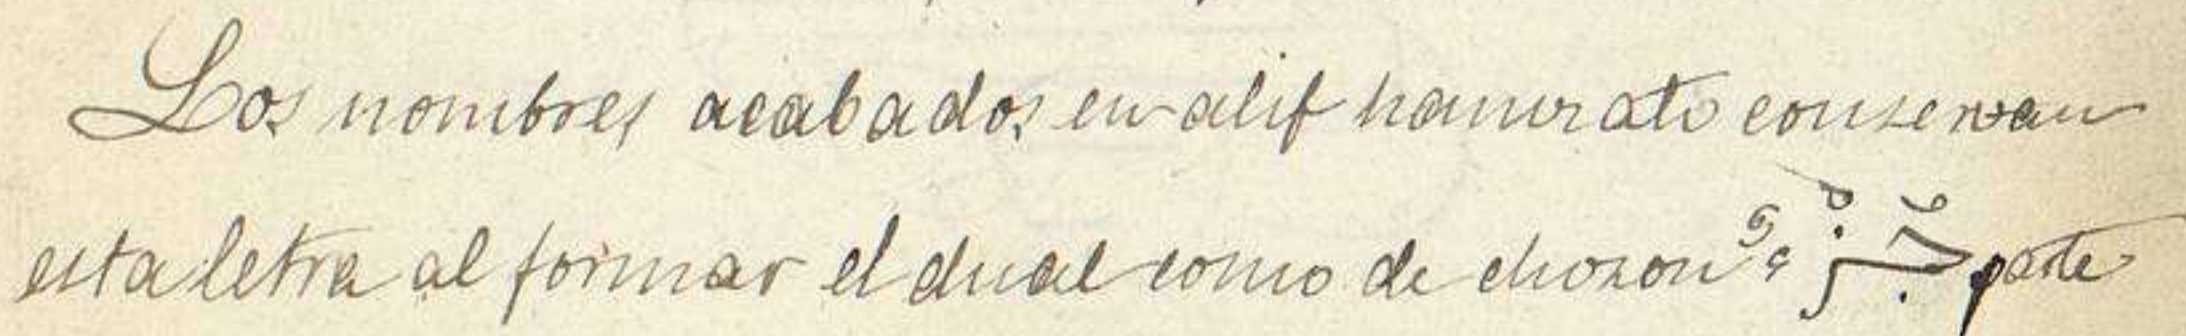 Los nombres acabados en alif hamrato conservan
esta letra al formar el dual como de chozon جُزْءٌ parte